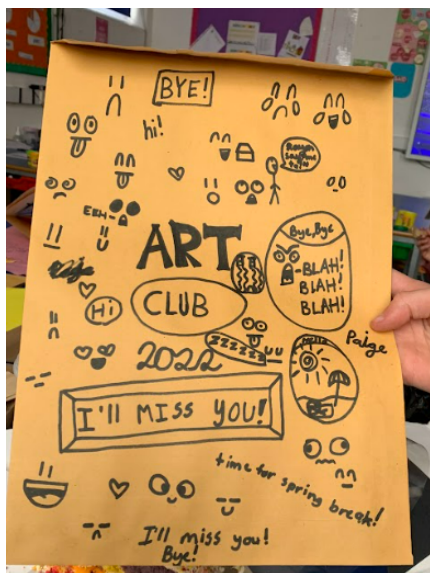 BYE!
hi!
EEH-
ART
Bye, Bye
-BLAH!
BLAH!
BLAH!
Hi
CLUB
Paige
zzzzzz
2022
I'LL MISS YOU!
time for spring break!
I'll miss you!
Bye!